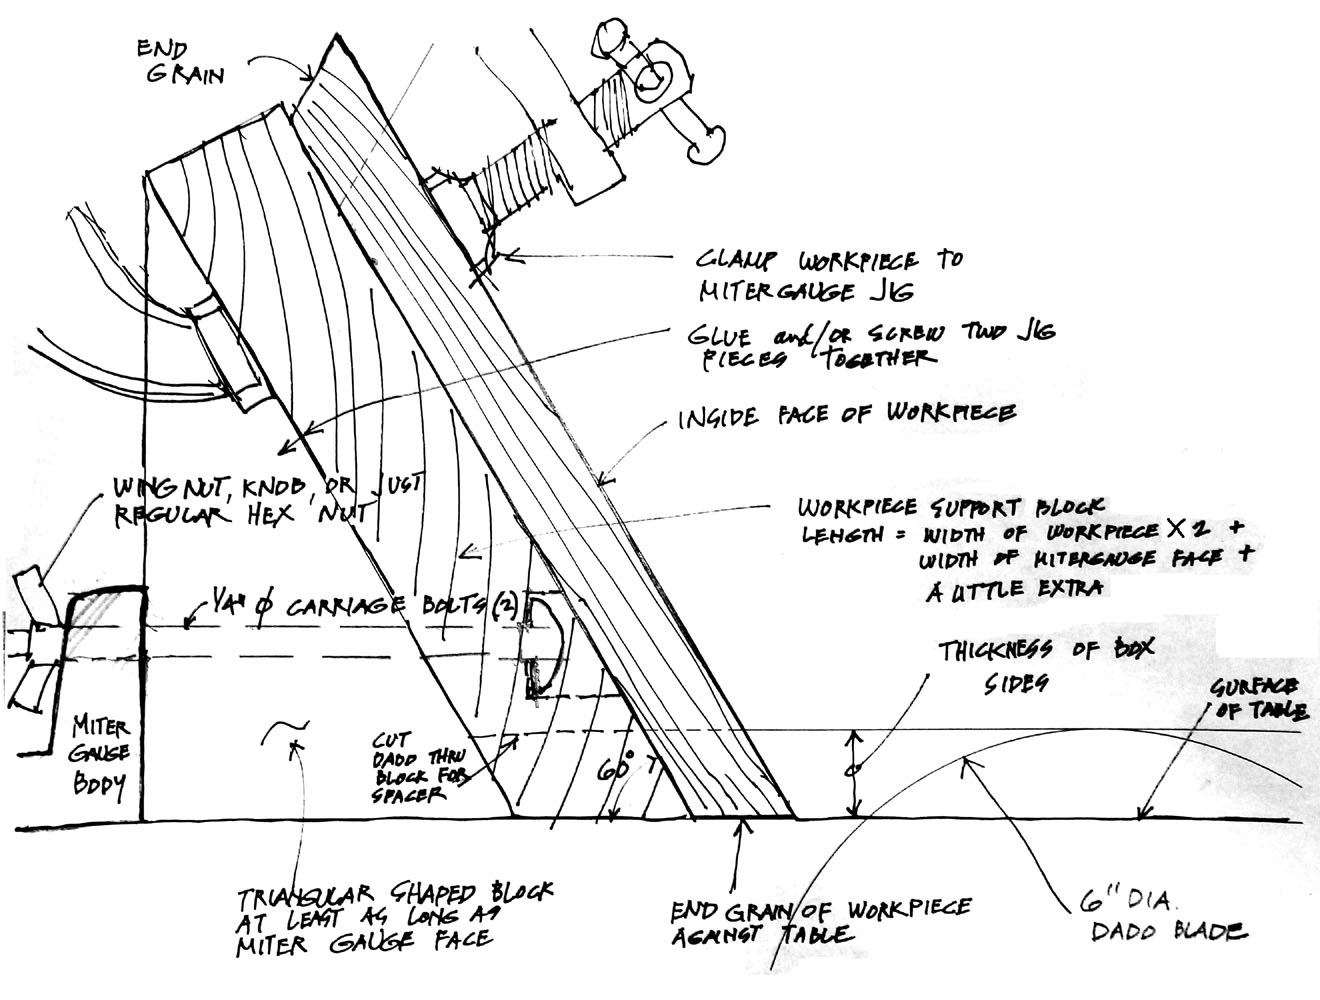 END
GRAIN
CLAMP WORKPIECE TO
MITERGAUGE JIG
GLUE and/OR SCREW TWO JIG
PIECES TOGETHER
INSIDE FACE OF WORKPIECE
WING NUT, KNOB, OR JUST
REGULAR HEX NUT
WORKPIECE SUPPORT BLOCK
LENGTH = WIDTH OF WORKPIECE X 2 +
WIDTH OF MITERGAUGE FACE +
A LITTLE EXTRA
1/4" Φ CARRIAGE BOLTS (2)
THICKNESS OF BOX
SIDES
SURFACE
OF TABLE
MITER
GAUGE
BODY
CUT
DADO THRU
BLOCK FOR
SPACER
60°
TRIANGULAR SHAPED BLOCK
AT LEAST AS LONG AS
MITER GAUGE FACE
END GRAIN OF WORKPIECE
AGAINST TABLE
6" DIA.
DADO BLADE